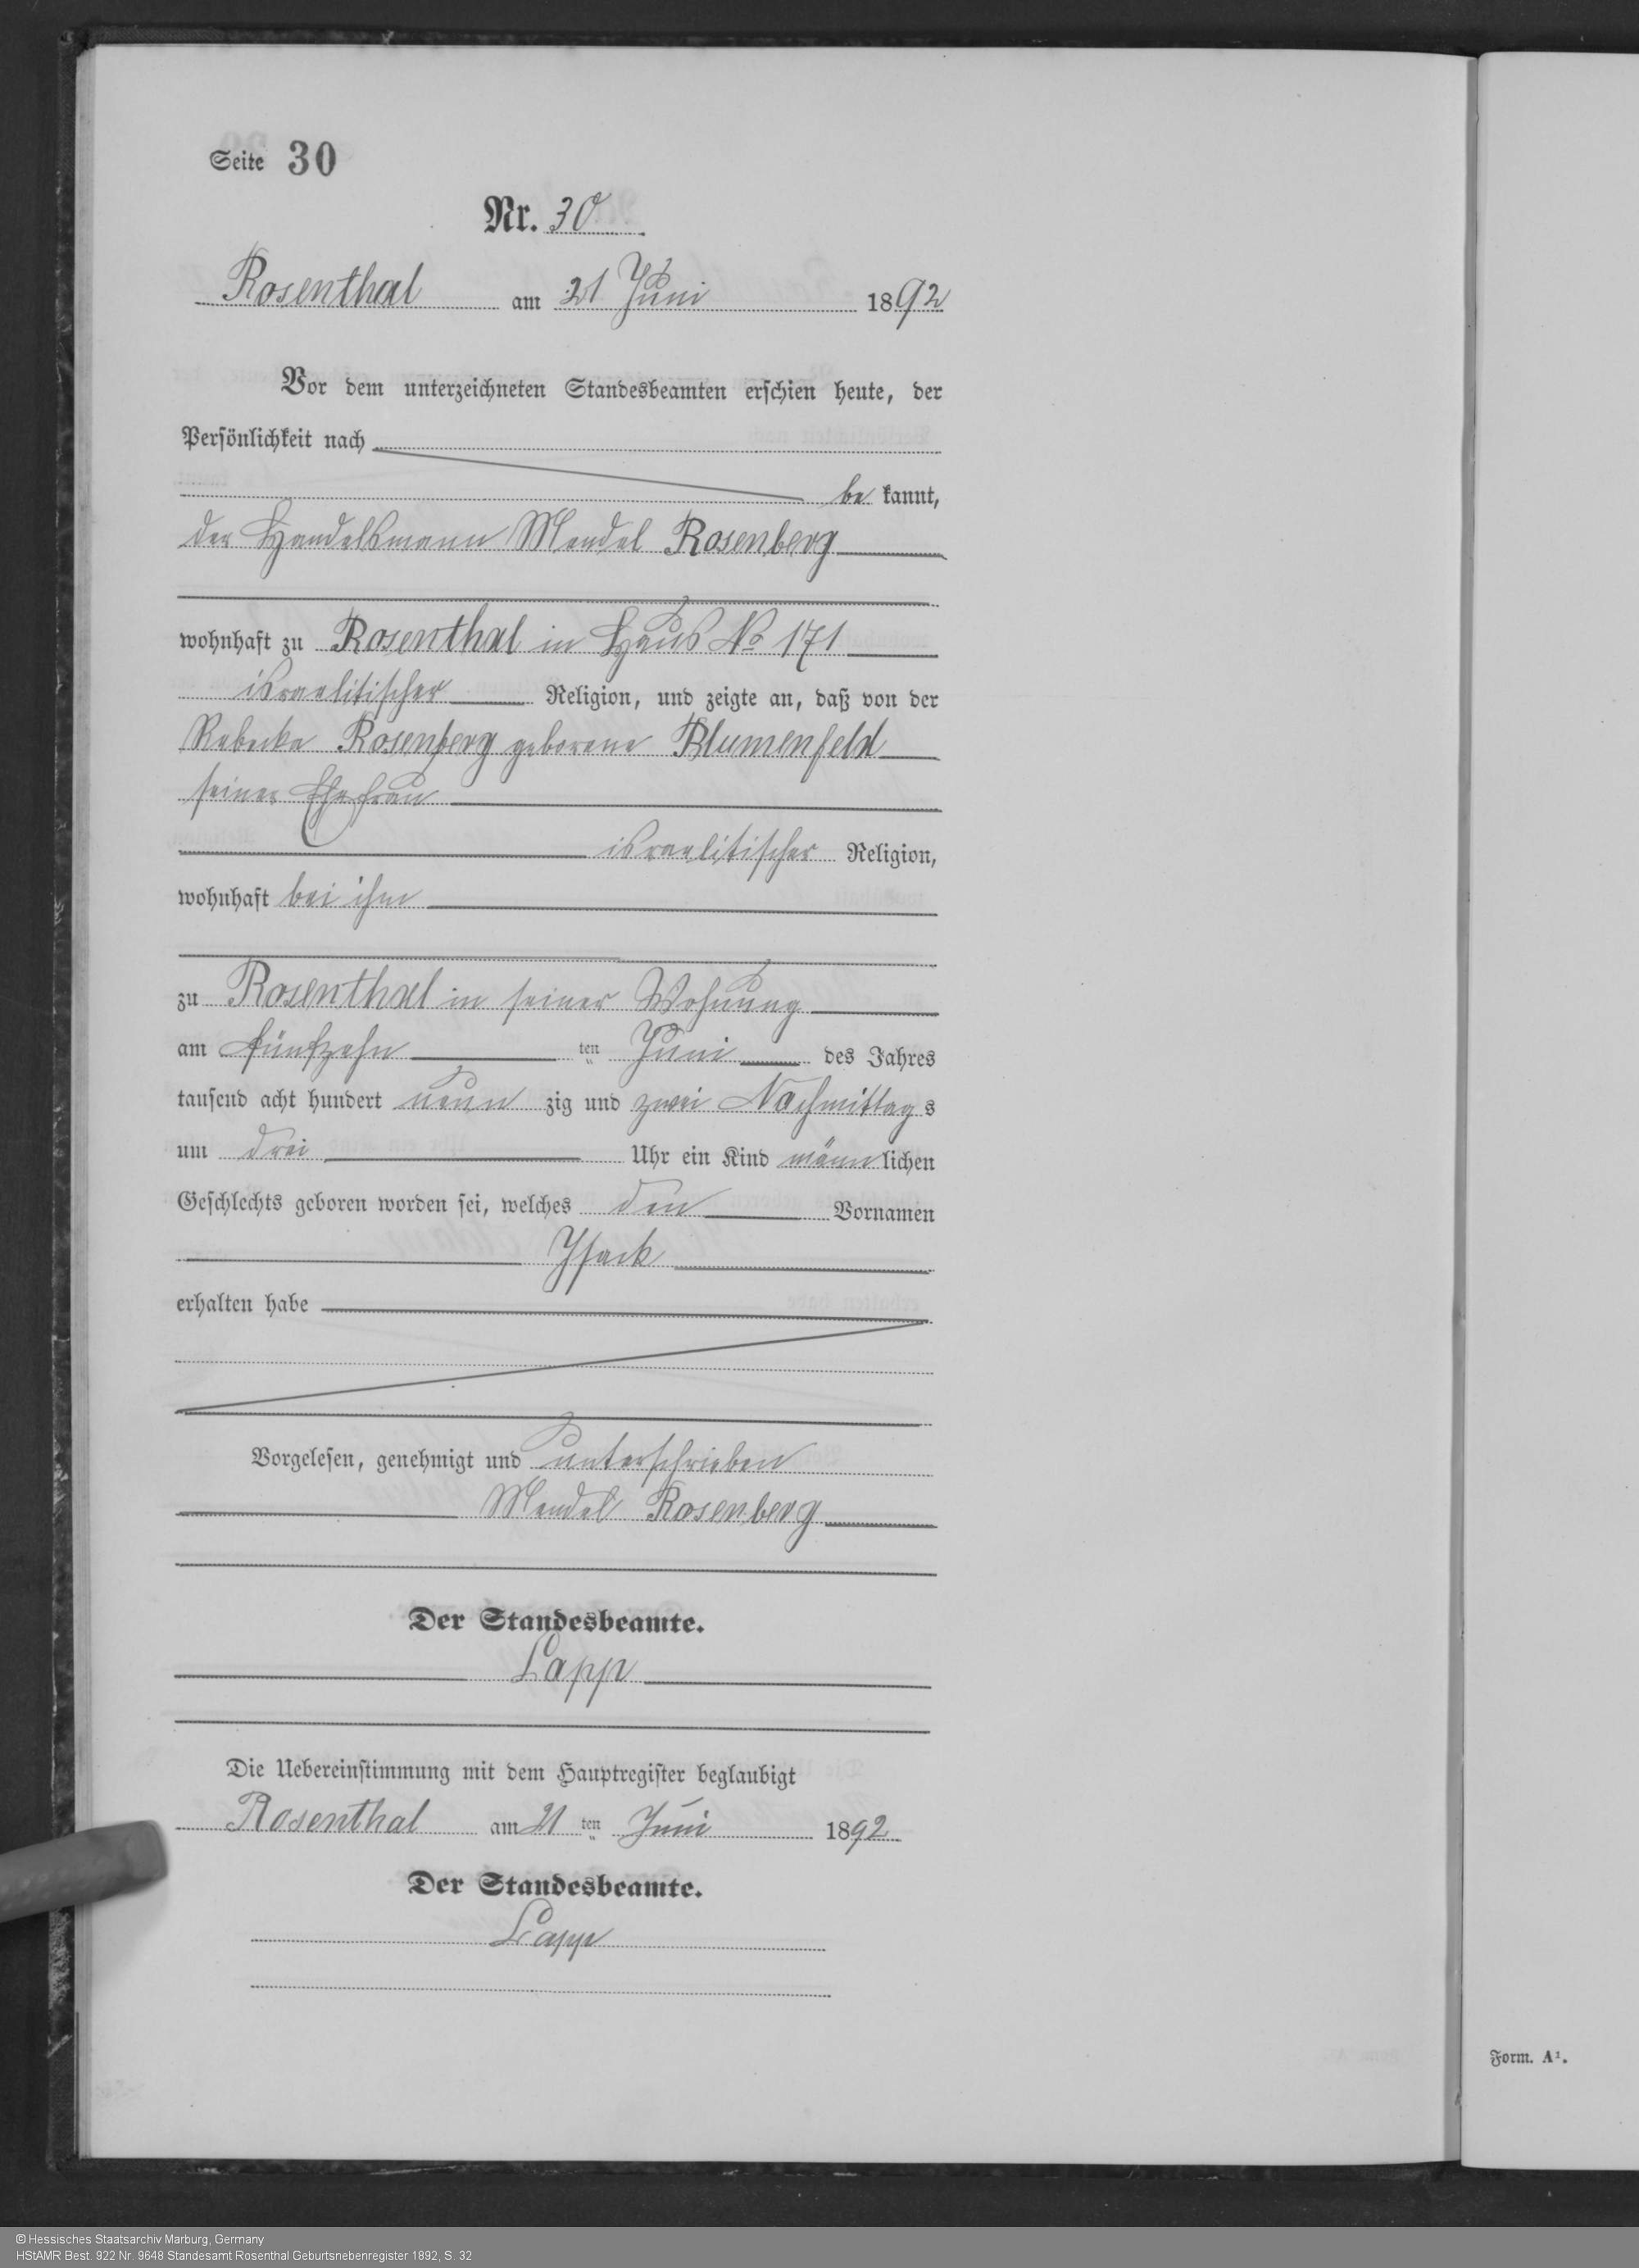 Seite 30
Nr. 30
Rosenthal am 21 Juni 1892
Vor dem unterzeichneten Standesbeamten erschien heute, der
Persönlichkeit nach
be kannt,
der Handelsmann Mendel Rosenberg
wohnhaft zu Rosenthal in Haus No 171
israelitischer Religion, und zeigte an, daß von der
Rebecka Rosenberg geborene Blumenfeld
seiner Ehefrau
israelitischer Religion,
wohnhaft bei ihm
zu Rosenthal in seiner Wohnung
am fünfzehn ten Juni des Jahres
tausend acht hundert neun zig und zwei Nachmittag s
um drei Uhr ein Kind männ lichen
Geschlechts geboren worden sei, welches den Vornamen
Isack
erhalten habe
Vorgelesen, genehmigt und unterschrieben
Mendel Rosenberg
Der Standesbeamte.
Lapp
Die Uebereinstimmung mit dem Hauptregister beglaubigt
Rosenthal am 21 ten Juni 1892
Der Standesbeamte.
Lapp
Form. A¹.
© Hessisches Staatsarchiv Marburg, Germany
HStAMR Best. 922 Nr. 9648 Standesamt Rosenthal Geburtsnebenregister 1892, S. 32